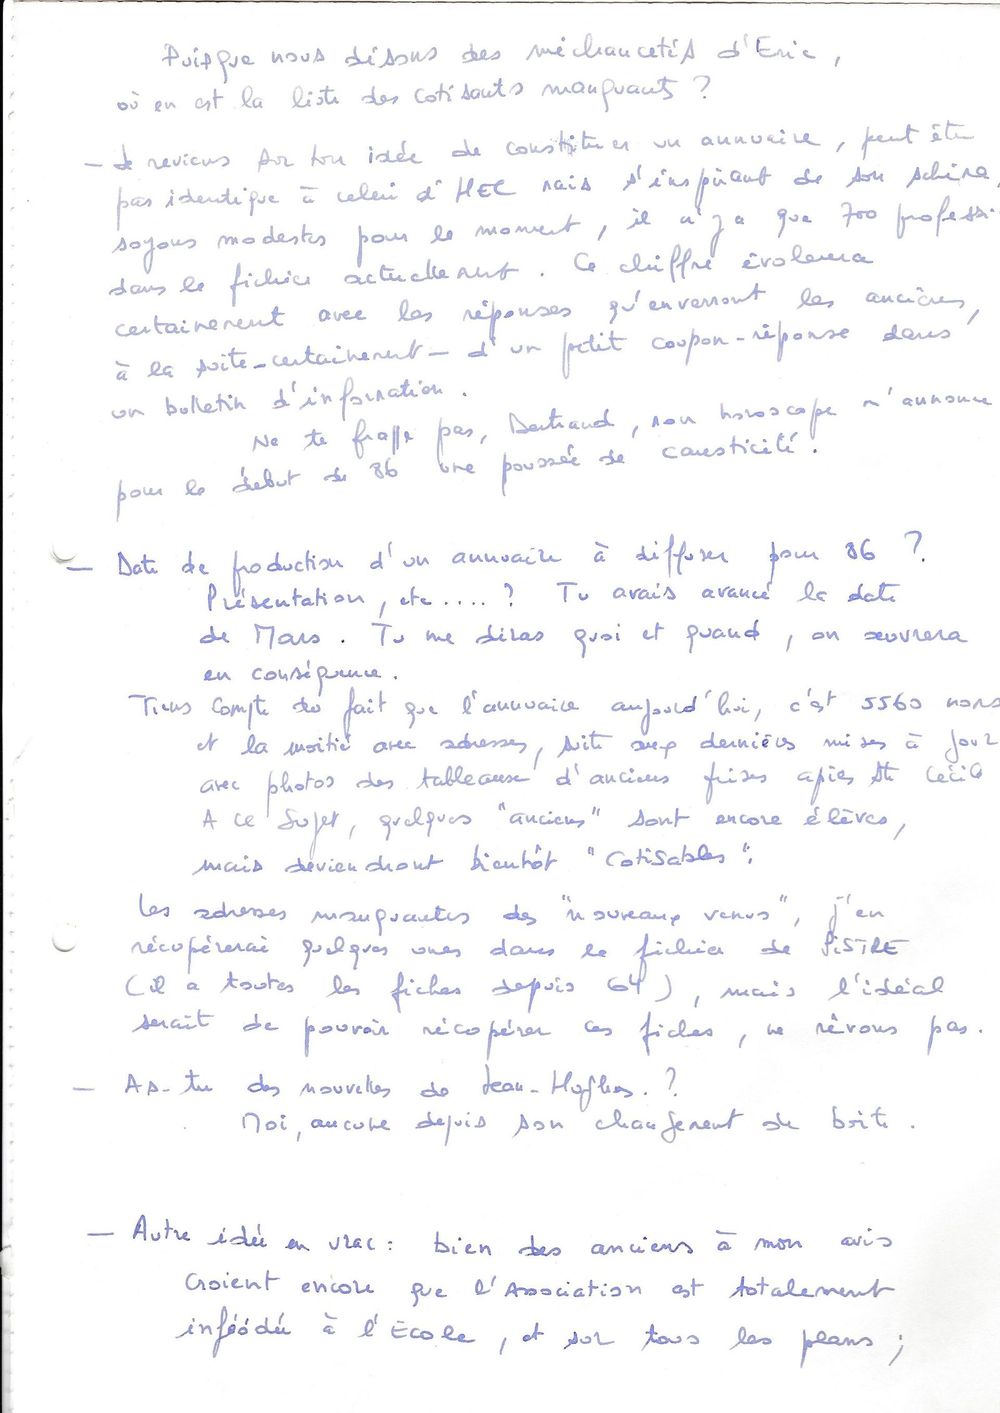 Puisque nous disons des méchancetés d'Eric,
où en est la liste des cotisants manquants ?
- Je reviens sur ton idée de constituer un annuaire, peut être
pas identique à celui d'HEC mais s'inspirant de son schéma,
soyons modestes pour le moment, il n'y a que 700 professi.
dans le fichier actuellement. Ce chiffre évoluera
certainement avec les réponses qu'enverront les anciens,
à la suite - certainement - d'un petit coupon-réponse dans
un bulletin d'information.
Ne te frappe pas, Bertrand, mon horoscope m'annonce
pour le début de 86 une poussée de causticité.
- Date de production d'un annuaire à diffuser pour 86 ?
Présentation, etc .... ? Tu avais avancé la date
de Mars. Tu me diras quoi et quand, on œuvrera
en conséquence.
Tiens compte du fait que l'annuaire aujourd'hui, c'est 5560 noms
et la moitié avec adresses, suite aux dernières mises à jour
avec photos des tableaux d'anciens prises après Ste Cécile
A ce sujet, quelques "anciens" sont encore élèves,
mais deviendront bientôt "cotisables".
Les adresses manquantes des "nouveaux venus", j'en
récupérerai quelques unes dans le fichier de PISTRE
(il a toutes les fiches depuis 64), mais l'idéal
serait de pouvoir récupérer ces fiches, ne rêvons pas.
- As-tu des nouvelles de Jean-Hughes. ?
Moi, aucune depuis son changement de boite.
- Autre idée en vrac : bien des anciens à mon avis
croient encore que l'Association est totalement
inféodée à l'Ecole, et sur tous les plans ;